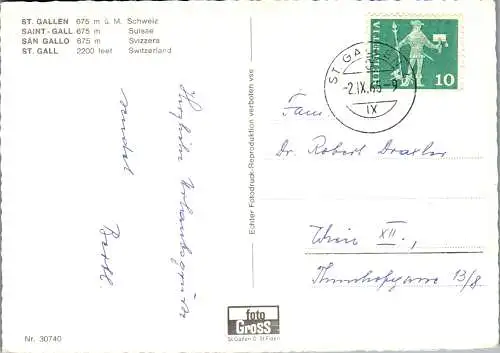 ST. GALLEN 675 m ü. M. Schweiz
SAINT-GALL 675 m Suisse
SAN GALLO 675 m Svizzera
ST. GALL 2200 feet Switzerland
HELVETIA
10
ST. GALLEN
-2.IX.65-9
IX
Herzliche Urlaubsgrüße
sendet
Fam.
Dr. Robert Draxler
Wien XII.,
13/8
Echter Fotodruck/Reproduktion verboten vbs
foto
GROSS
St. Gallen O St. Fiden
Nr. 30740